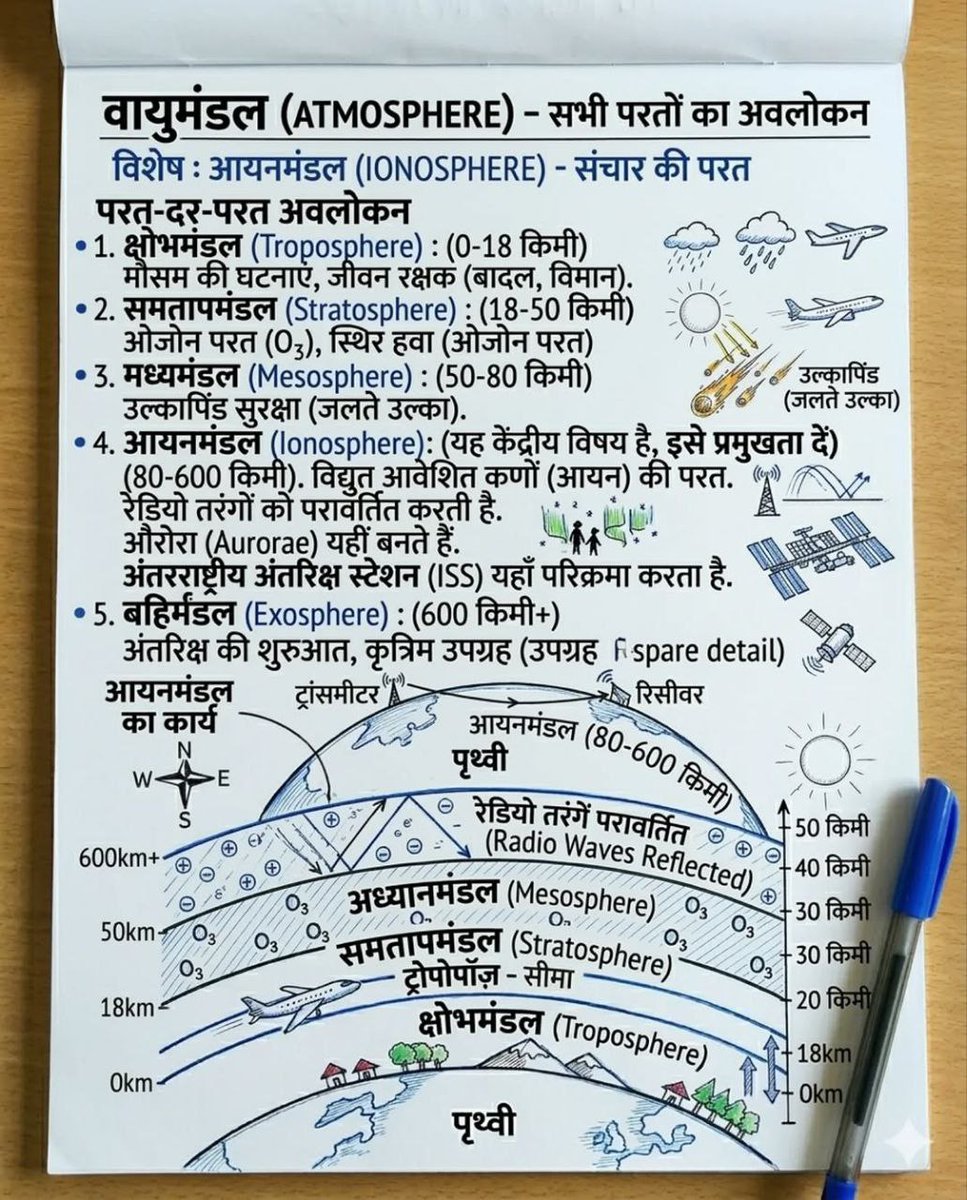 वायुमंडल (ATMOSPHERE) – सभी परतों का अवलोकन
विशेष : आयनमंडल (IONOSPHERE) - संचार की परत
परत-दर-परत अवलोकन
• 1. क्षोभमंडल (Troposphere) : (0-18 किमी)
मौसम की घटनाएं, जीवन रक्षक (बादल, विमान).
• 2. समतापमंडल (Stratosphere) : (18-50 किमी)
ओजोन परत (O₃), स्थिर हवा (ओजोन परत)
• 3. मध्यमंडल (Mesosphere) : (50-80 किमी)
उल्कापिंड सुरक्षा (जलते उल्का).
उल्कापिंड
(जलते उल्का)
• 4. आयनमंडल (Ionosphere): (यह केंद्रीय विषय है, इसे प्रमुखता दें)
(80-600 किमी). विद्युत आवेशित कणों (आयन) की परत.
रेडियो तरंगों को परावर्तित करती है.
औरोरा (Aurorae) यहीं बनते हैं.
अंतरराष्ट्रीय अंतरिक्ष स्टेशन (ISS) यहाँ परिक्रमा करता है.
• 5. बहिर्मंडल (Exosphere) : (600 किमी+)
अंतरिक्ष की शुरुआत, कृत्रिम उपग्रह (उपग्रह spare detail)
आयनमंडल
का कार्य
ट्रांसमीटर
रिसीवर
आयनमंडल (80-600 किमी)
पृथ्वी
N
W E
S
रेडियो तरंगें परावर्तित
(Radio Waves Reflected)
600km+
50km
18km
0km
अध्यानमंडल (Mesosphere)
O₃ O₃ O₃ O₃ O₃ O₃ O₃ O₃ O₃
समतापमंडल (Stratosphere)
ट्रोपोपॉज़ - सीमा
क्षोभमंडल (Troposphere)
पृथ्वी
50 किमी
40 किमी
30 किमी
30 किमी
20 किमी
18km
0km